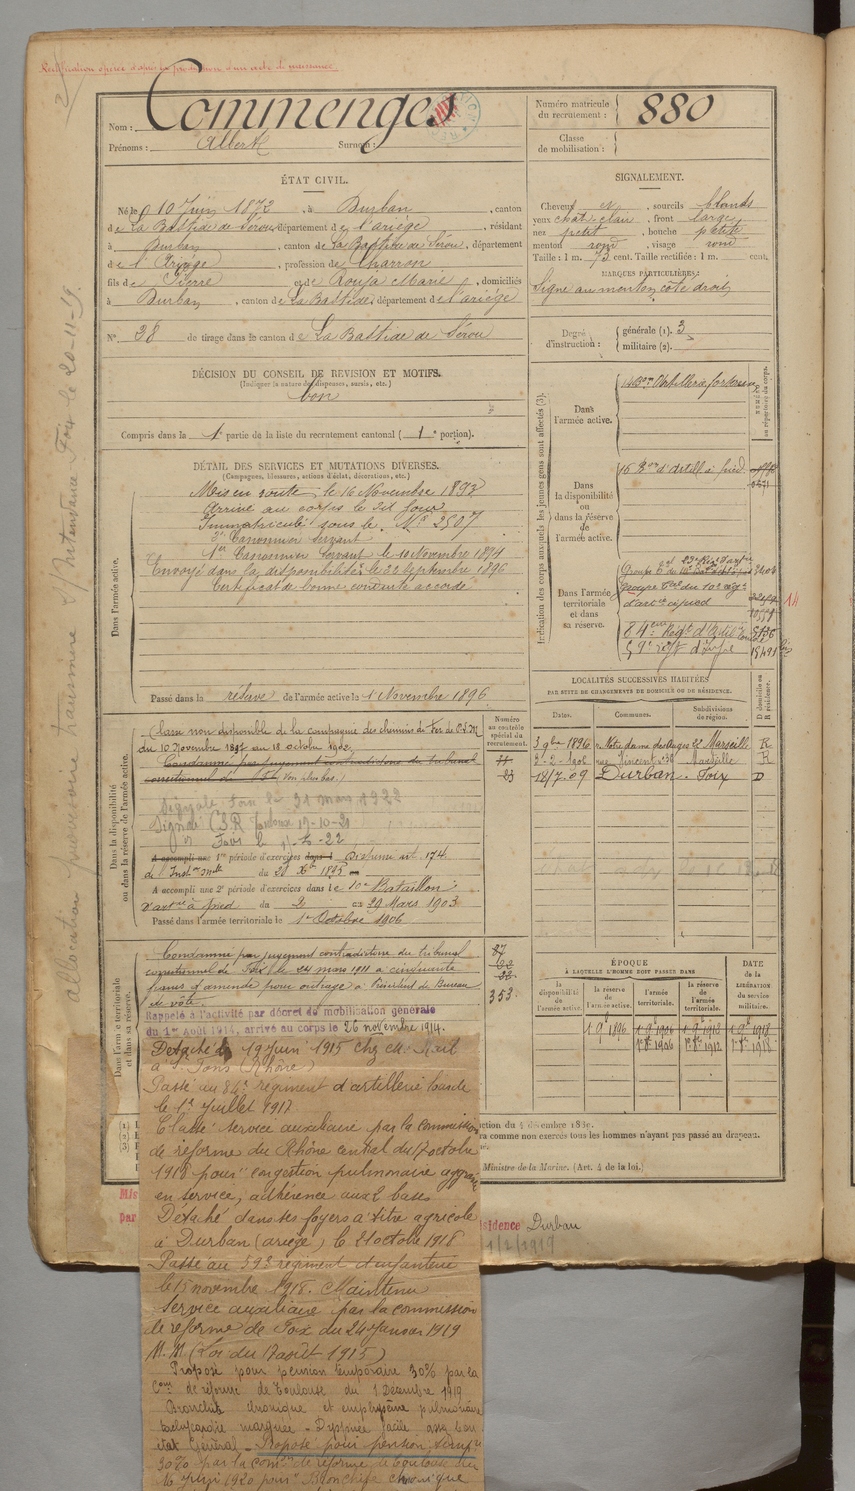 Rectification opérée d'après la production d'un acte de naissance
Nom : Commenges
Prénoms : Albert Surnom :
Numéro matricule du recrutement : 880
Classe de mobilisation :
ÉTAT CIVIL.
Né le 10 Juin 1872, à Durban, canton
de La Bastide de Sérou, département de l'ariège, résidant
à Durban, canton de La Bastide de Sérou, département
de l'Ariège, profession de Charron
fils de Pierre et de Roufa Marie, domiciliés
à Durban, canton de La Bastide, département de l'ariège
N° 38 de tirage dans le canton de La Bastide de Sérou
SIGNALEMENT.
Cheveux et, sourcils blonds
yeux chât. clair, front large
nez petit, bouche petite
menton rond, visage rond
Taille : 1 m. 73 cent. Taille rectifiée : 1 m. cent.
MARQUES PARTICULIÈRES :
Signe au menton côté droit
Degré d'instruction : générale (1). 3
militaire (2).
DÉCISION DU CONSEIL DE REVISION ET MOTIFS.
(Indiquer la nature des dispenses, sursis, etc.)
bon
Compris dans la 1e partie de la liste du recrutement cantonal (1e portion).
DÉTAIL DES SERVICES ET MUTATIONS DIVERSES.
(Campagnes, blessures, actions d'éclat, décorations, etc.)
Dans l'armée active.
Mis en route le 16 Novembre 1893
Arrivé au corps le dit jour
Immatriculé sous le N° 3507
2e Canonnier servant
1er Canonnier servant le 10 Novembre 1894
Envoyé dans la disponibilité le 22 Septembre 1896
Certificat de bonne conduite accordé
Passé dans la réserve de l'armée active le 1 Novembre 1896
Indication des corps auxquels les jeunes gens sont affectés (3).
NUMÉRO au répertoire du corps.
Dans l'armée active.
Dans la disponibilité ou dans la réserve de l'armée active.
16 Bon d'artill. à pied
Dans l'armée territoriale et dans sa réserve.
Groupe Ter du 10e regt
d'artie à pied
84eme Régt d'Artil Lourde
59e regt d'Infie
LOCALITÉS SUCCESSIVES HABITÉES
PAR SUITE DE CHANGEMENTS DE DOMICILE OU DE RÉSIDENCE.
Dates. Communes. Subdivisions de région. D domicile ou R résidence.
3 9bre 1896 r. Notre dame des Anges 22 Marseille R
3-2-1906 rue Vincent n° 38 Marseille R
18/7-09 Durban Foix D
Numéro au contrôle spécial du recrutement.
Dans la disponibilité ou dans la réserve de l'armée active.
Classé non disponible de la compagnie des chemins de fer de P.L.M
du 10 Novembre 1897 au 18 octobre 1902
Condamné par jugement contradictoire du tribunal
correctionnel de (Voir plus bas.)
Foix le 31 mars 1922
Signalé C.S.R Toulouse 19-10-21
A accompli une 1re période d'exercices dans
A accompli une 2e période d'exercices dans le 10e Bataillon
d'artie à pied du 2 au 29 Mars 1903
Passé dans l'armée territoriale le 1er Octobre 1906
Dans l'armée territoriale et dans sa réserve.
Condamné par jugement contradictoire du tribunal
correctionnel de Foix le 24 mars 1911 à cinquante
francs d'amende pour outrage à Président de Bureau
de vote.
353
Rappelé à l'activité par décret de mobilisation générale
du 1er Août 1914, arrivé au corps le 26 novembre 1914.
ÉPOQUE
À LAQUELLE L'HOMME DOIT PASSER DANS
la disponibilité de l'armée active. la réserve de l'armée active. l'armée territoriale. la réserve de l'armée territoriale.
DATE de la LIBÉRATION du service militaire.
Détaché le 19 juin 1915 chez M. Mail
à St Fons (Rhône)
Passé au 84e regiment d'artillerie lourde
le 1er Juillet 1917
Classé service auxiliaire par la commission
de réforme du Rhône central du 17 octobre
1918 pour "congestion pulmonaire aggravée
en service, adhérence aux 2 bases
Détaché dans ses foyers à titre agricole
à Durban (ariège) le 21 octobre 1918
Passé au 59e regiment d'infanterie
le 15 novembre 1918. Maintenu
Service auxiliaire par la commission
de réforme de Foix du 24 Janvier 1919
M. M (Loi du 17 août 1915)
Proposé pour pension temporaire 30% par la
Com de réforme de Toulouse du 1 Décembre 1919
Bronchite chronique et emphysème pulmonaire
tachycardie marquée - Dyspnée facile assez bon
état Général - Proposé pour pension
30% par la comon de réforme de Toulouse du
16 Juin 1920 pour Bronchite chronique
ction du 4 décembre 1889.
ra comme non exercés tous les hommes n'ayant pas passé au drapeau.
Ministre de la Marine. (Art. 4 de la loi.)
Mis
par
sidence Durban
1/2/1919
allocation provisoire Intendance Foix le 20-11-19.